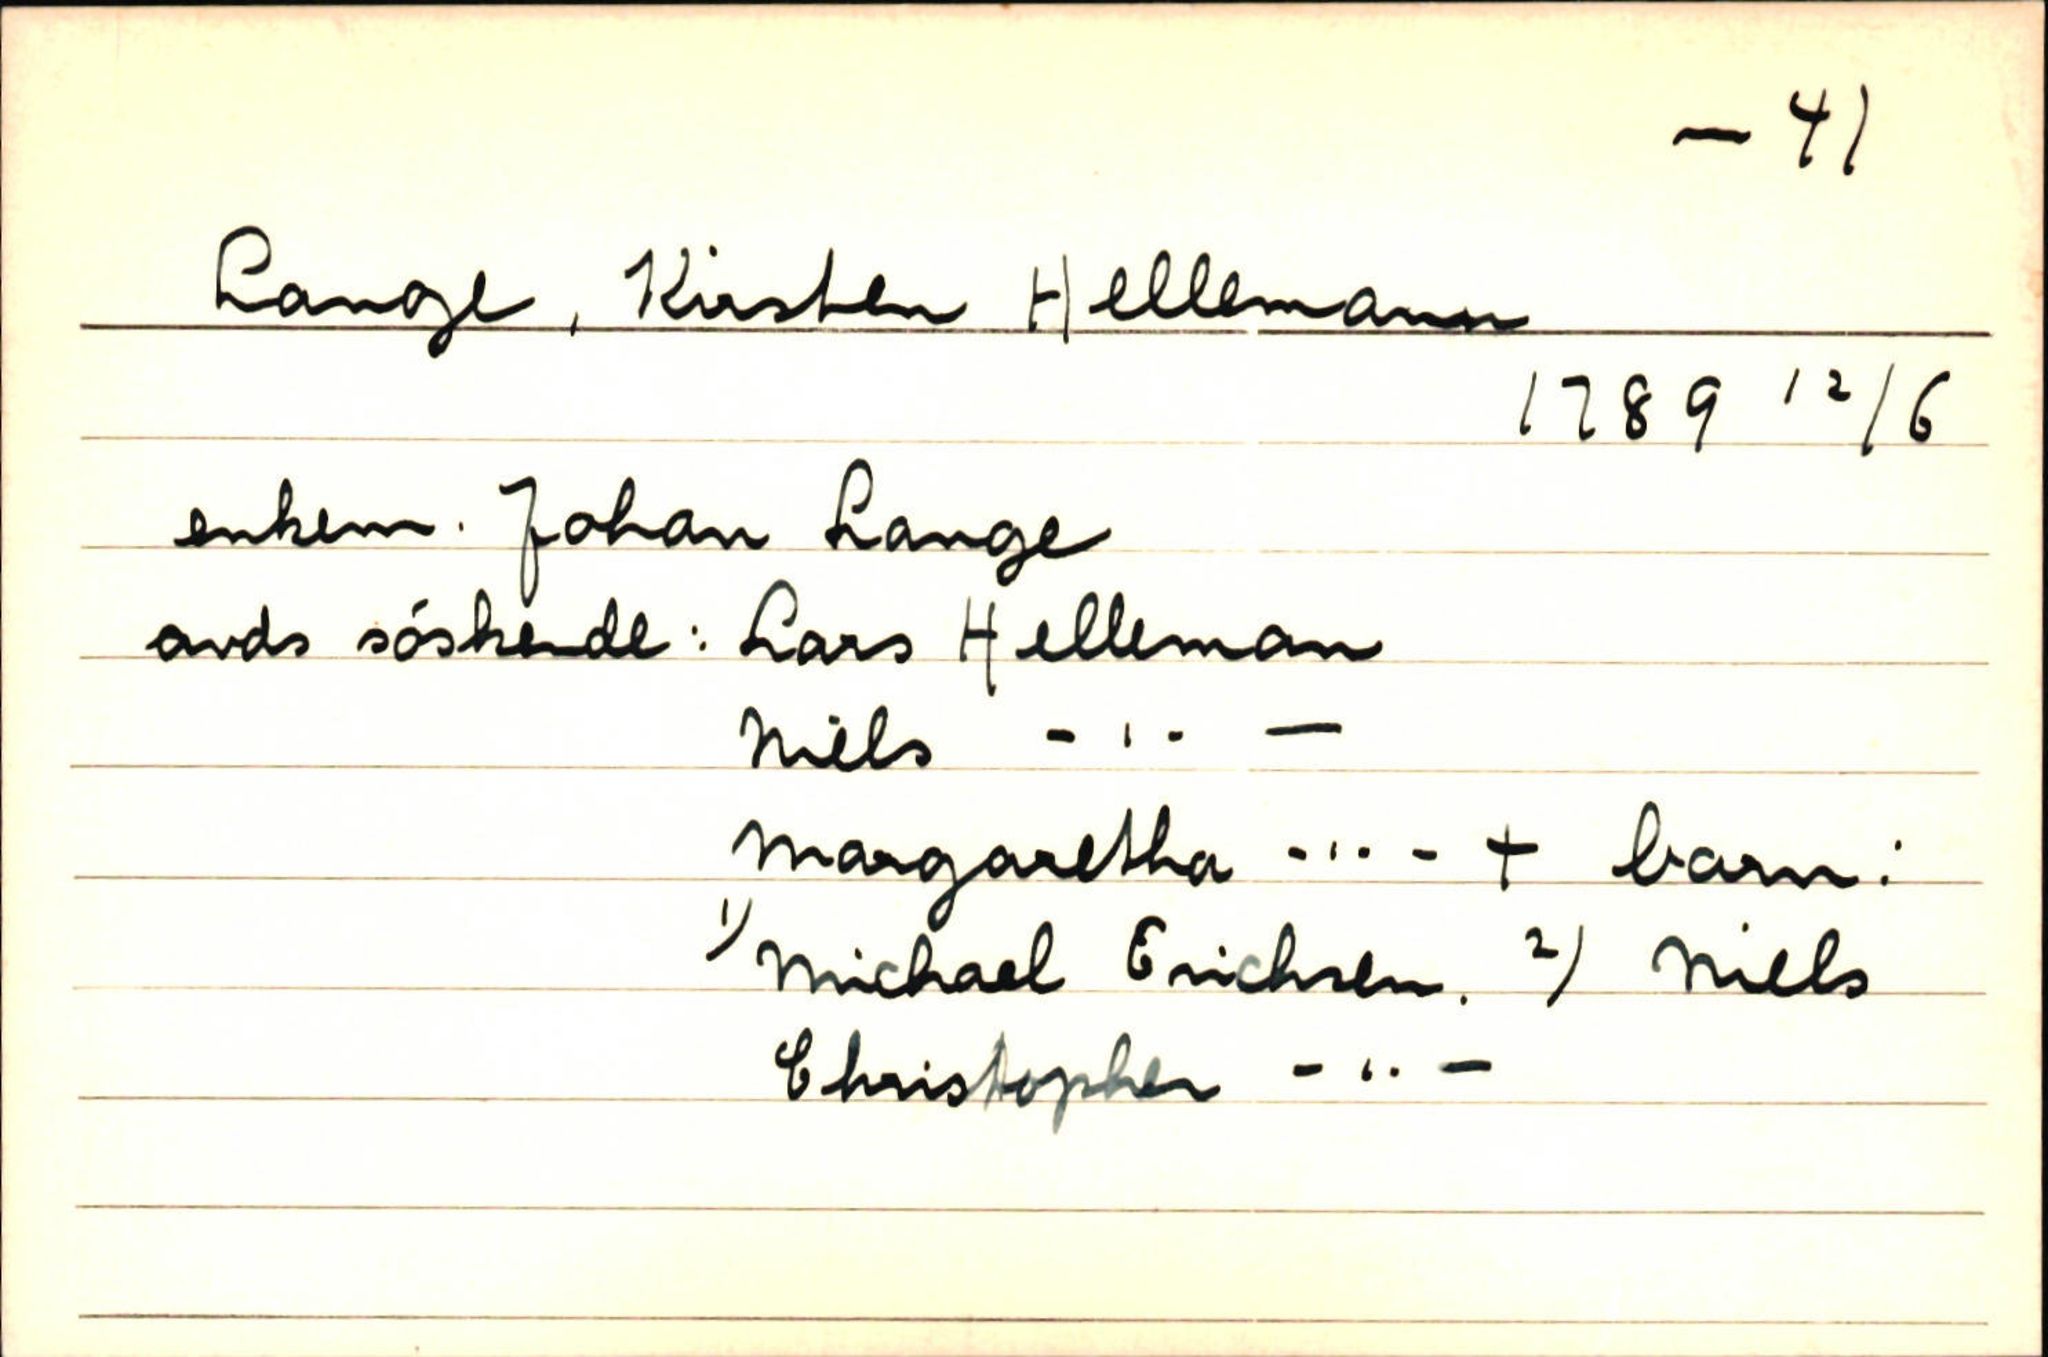 — 41
Lange, Kirsten Hellemann
1789 12/6
enkem. Johan Lange
avds söskende: Lars Helleman
Niels -"- —
Margaretha -"- + barn:
1) Michael Erichsen. 2) Niels
Christopher -"-